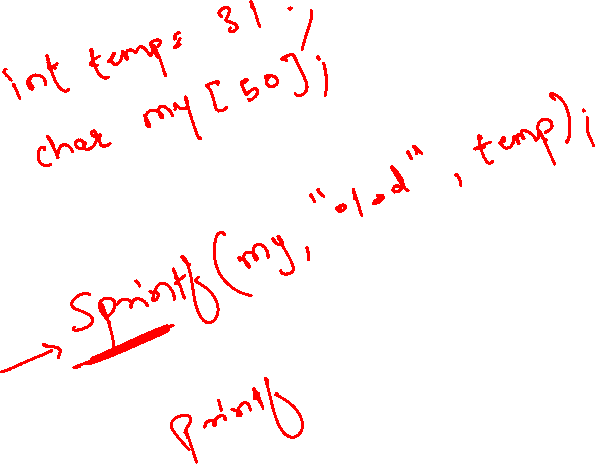 int temp = 31;
char my[50];
Sprintf(my, "%d", temp);
printf